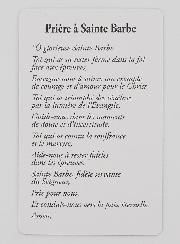 Prière à Sainte Barbe
"O glorieuse Sainte Barbe
Toi qui as su rester ferme dans la foi
face aux épreuves,
Enseigne-nous à suivre ton exemple
de courage et d'amour pour le Christ.
Toi qui as triomphé des ténèbres
par la lumière de l'Évangile,
Guide-nous dans les moments
de doute et d'incertitude.
Toi qui as connu la souffrance
et le martyre,
Aide-nous à rester fidèles
dans les épreuves.
Sainte Barbe, fidèle servante
du Seigneur,
Prie pour nous,
Et conduis-nous vers la paix éternelle.
Amen.